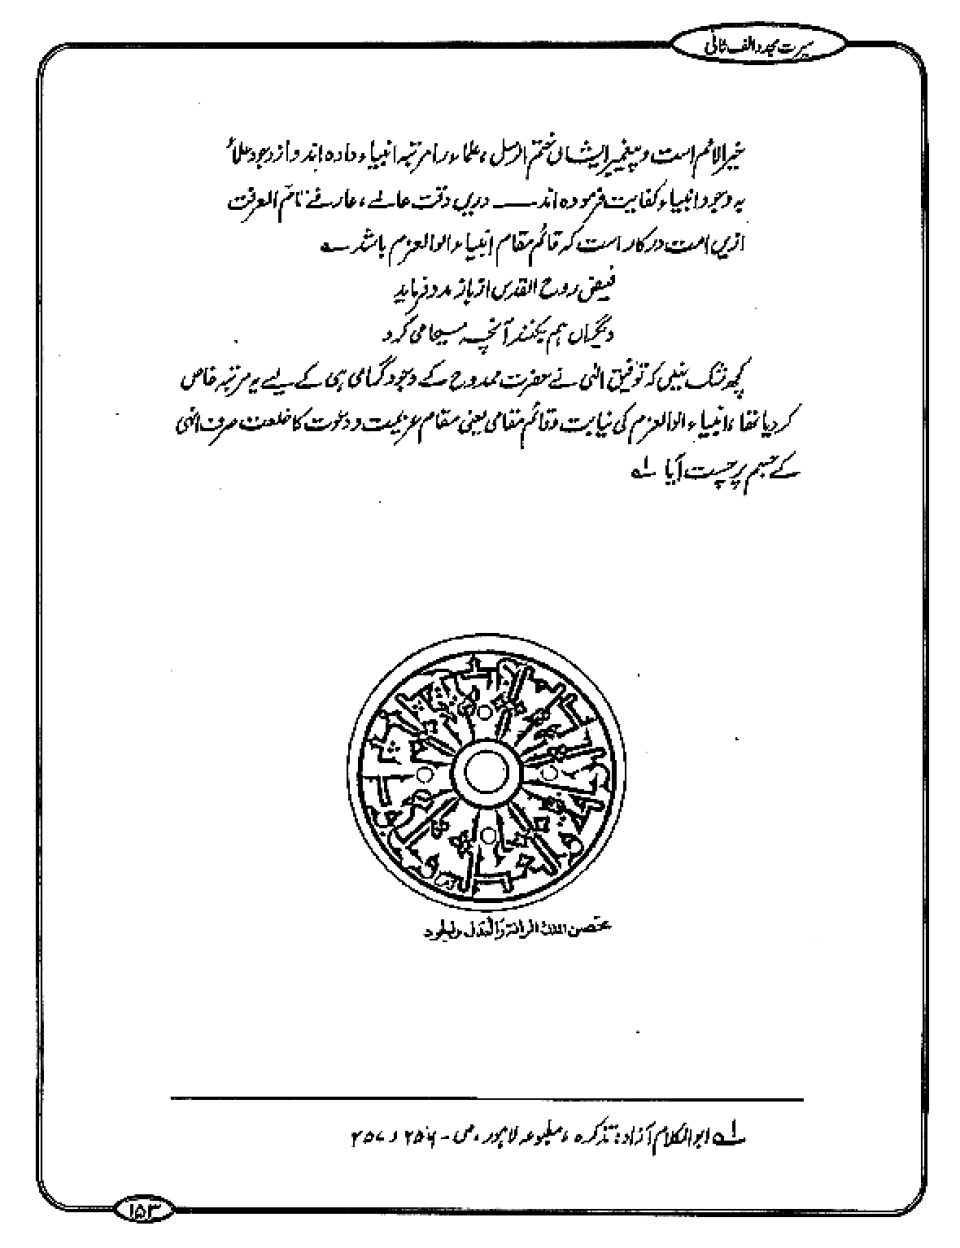 سیرت مجدد الف ثانی
خیر الامم است و پیغمبر ایشاں ختم الرسل، علماء را مرتبہ انبیاء دادہ اند و از وجود علماء
بہ وجود انبیاء کفایت فرمودہ اند ــــ دریں وقت عالمے، عارفے تام المعرفت
ازیں امت درکار است کہ قائم مقام انبیاء اولوالعزم باشد ؎
فیض روح القدس از باز مدد فرماید
دیگراں ہم بکنند آنچہ مسیحا می کرد
کچھ شک نہیں کہ توفیق الٰہی نے حضرت ممدوح کے وجود گرامی ہی کے لیے یہ مرتبہ خاص
کر دیا تھا، انبیاء اولوالعزم کی نیابت و قائم مقامی یعنی مقام عزیمت و دعوت کا خلعت صرف انہی
کے جسم پر چست آیا ۱ے
۱ے ابوالکلام آزاد: تذکرہ، مطبوعہ لاہور، ص۔ ۲۵۶ و ۲۵۷
۱۵۳